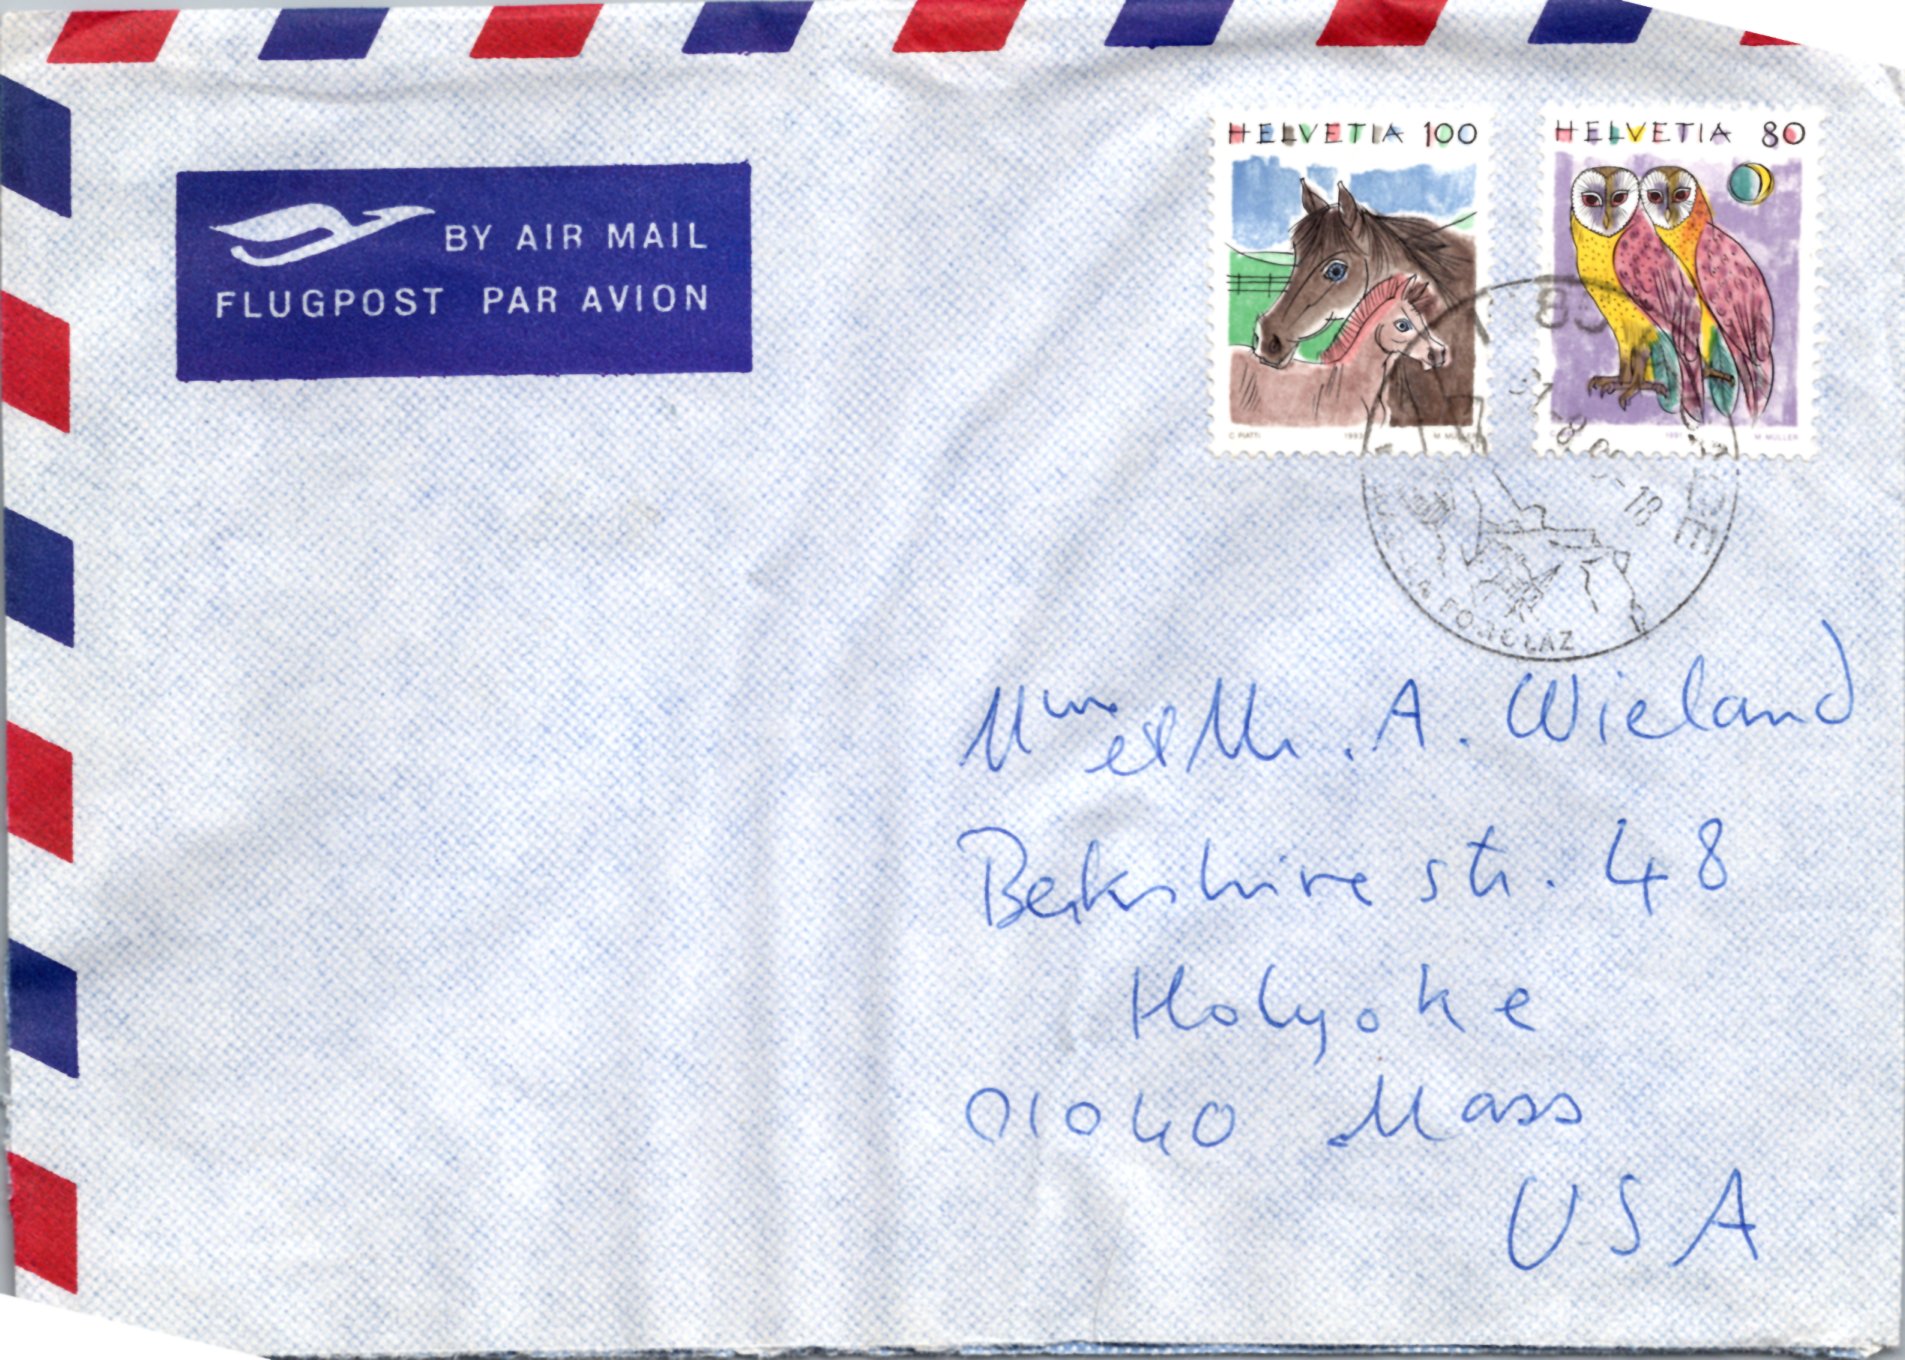 BY AIR MAIL
FLUGPOST PAR AVION
HELVETIA 100
C PIATTI 1993 M MÜLLER
HELVETIA 80
1991 M MÜLLER
Mme et Mr. A. Wieland
Berkshire str. 48
Holyoke
01040 Mass
USA